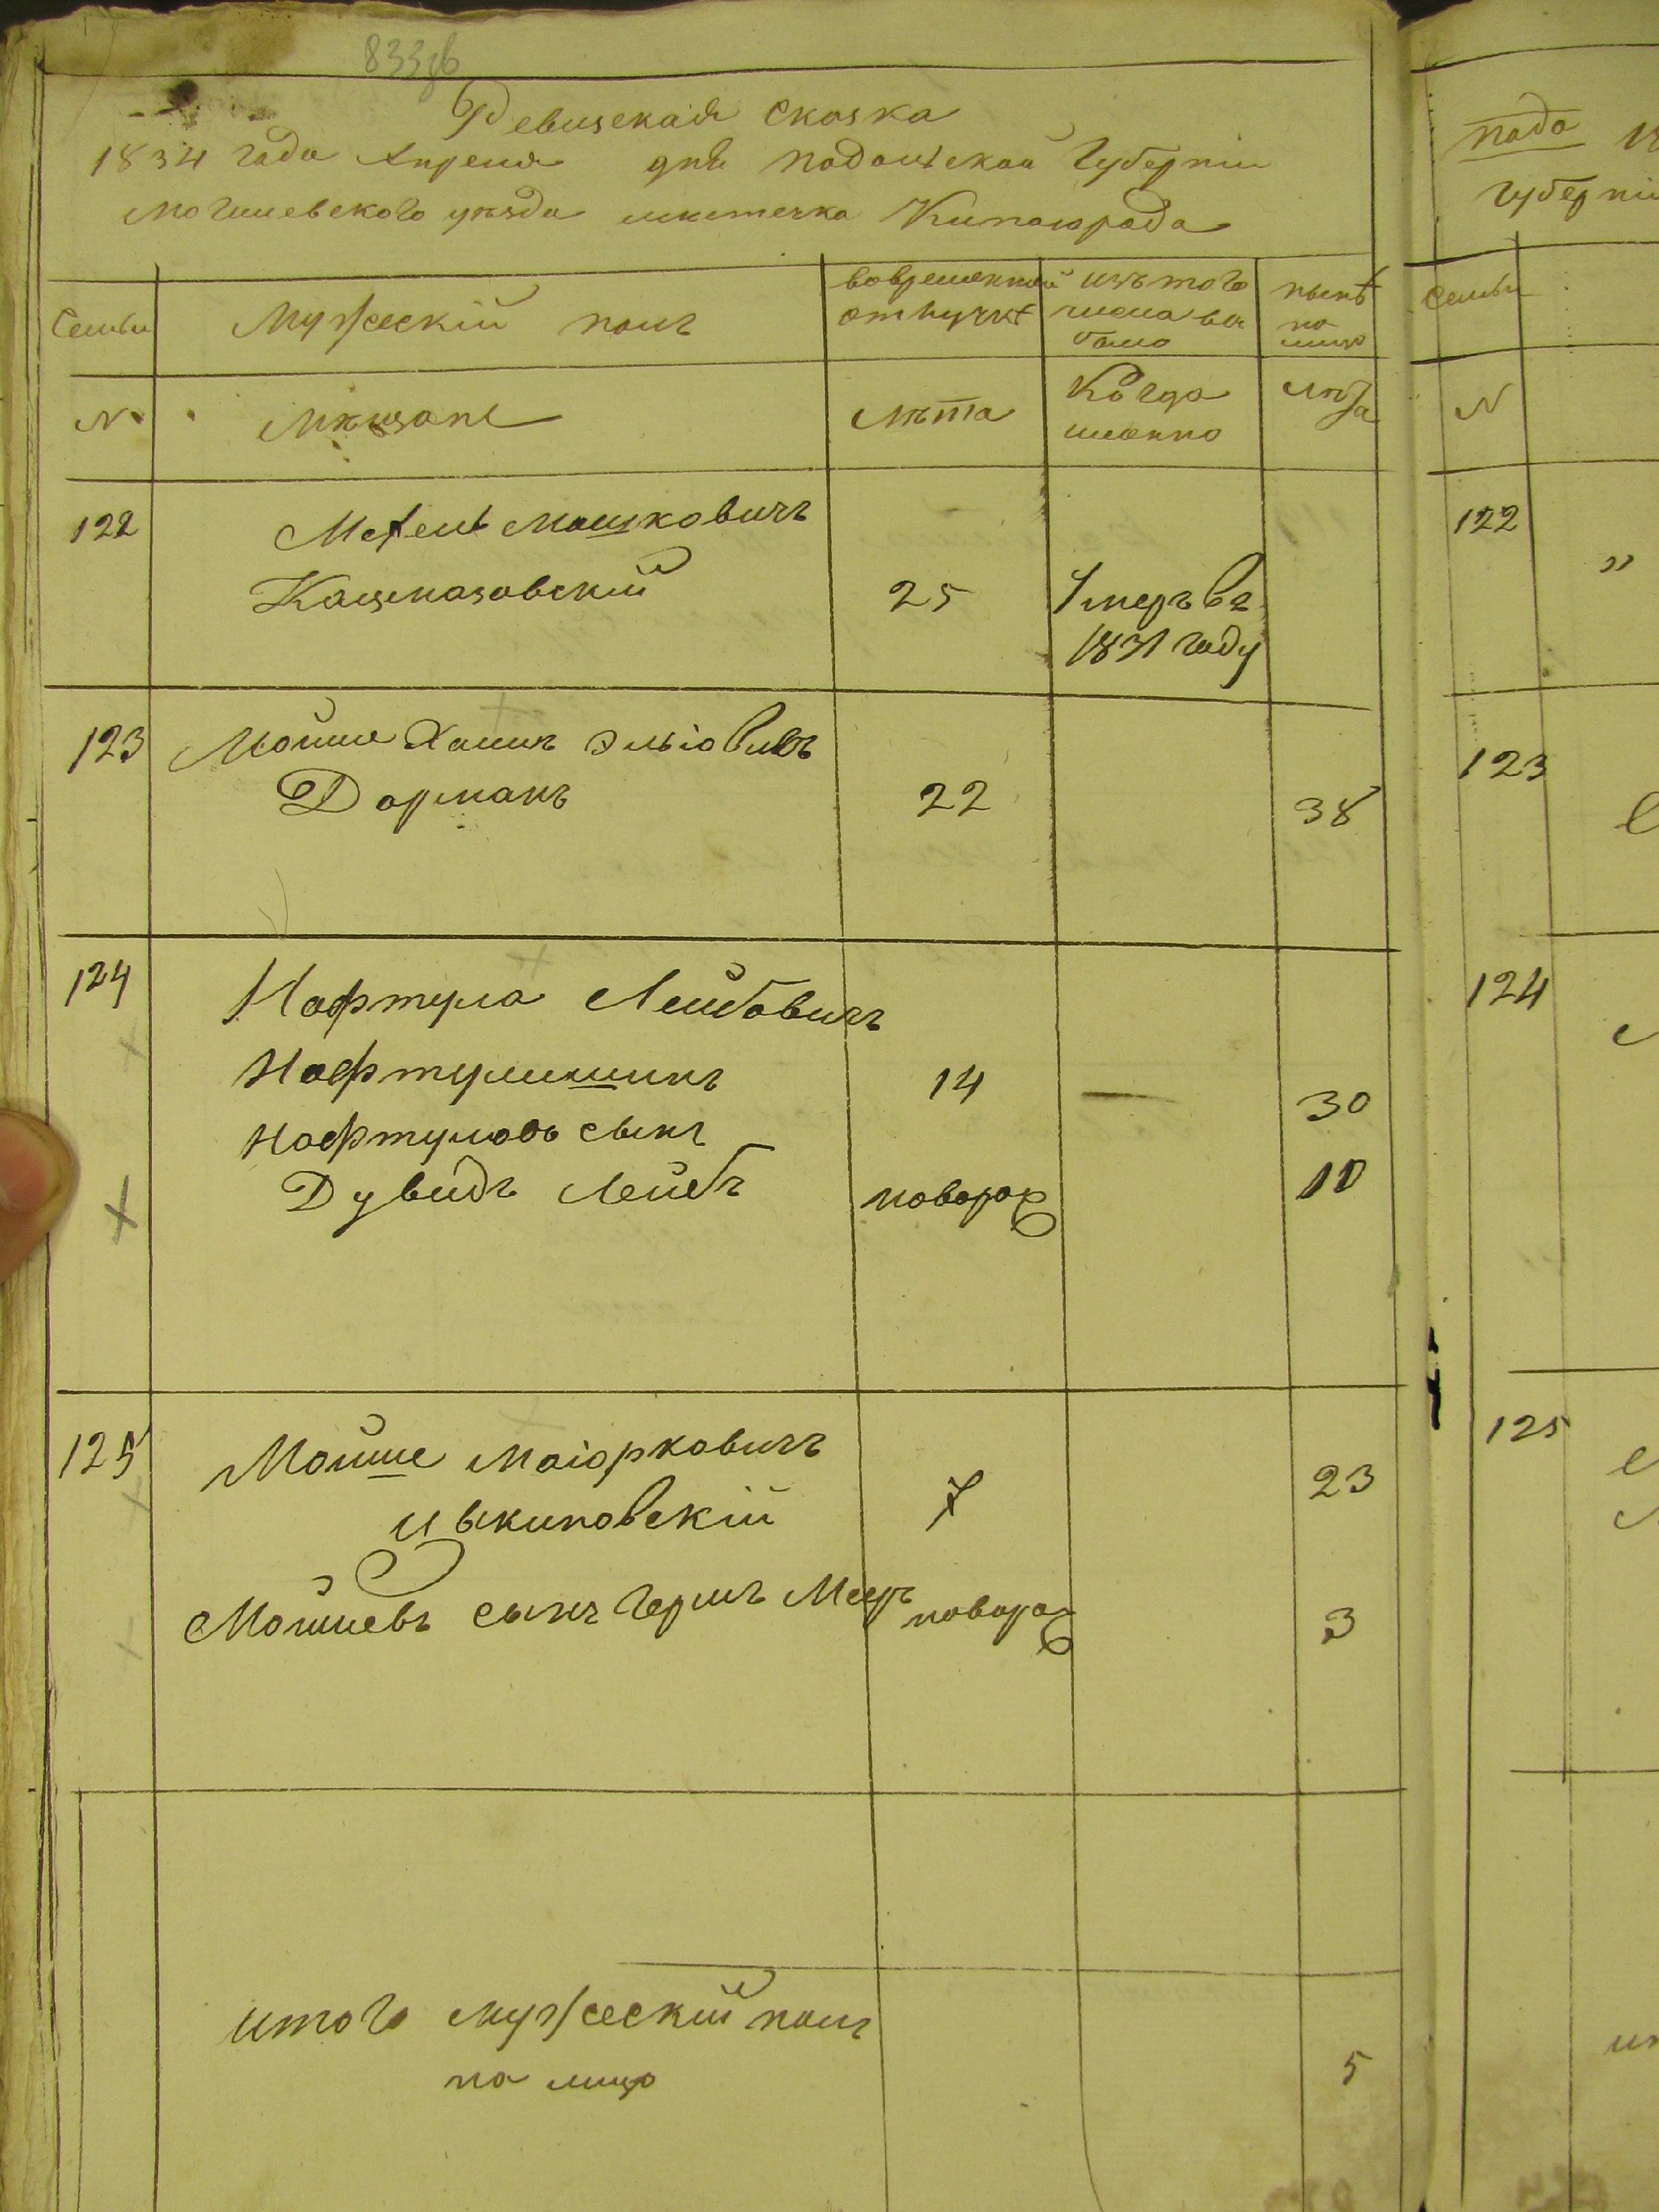 833об
Ревизская сказка
1834 года Апреля дня Подольской Губернiи
Могилевского уѣзда мѣстечка Китайгрода
Семьи
Мужескiй полъ
вовременной отлучкѣ
изъ того числа выбыло
нынѣ на лицо
№
Мѣщане
Лѣта
Когда именно
Лѣта
122 Мехель Мошковичъ
25 Умеръ въ
1831 году
123 Мойше Хаимъ Эльiовичъ
Дорманъ 22 38
124 Нафтула Лейбовичъ
Нафтулишинъ 14 — 30
Нафтуловъ сынъ
Дувидъ Лейбъ новорож 10
125 Мойше Маiорковичъ 23
Цыкиновскiй 7
Мойшевъ сынъ Гершъ Мееръ новорож 3
итого мужескiй полъ
на лицо 5
пода
губернiи
Семьи
№
122
"
123
124
125